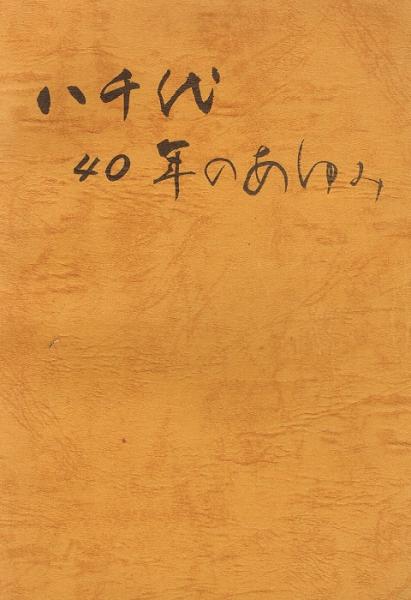 八千代
40年のあゆみ